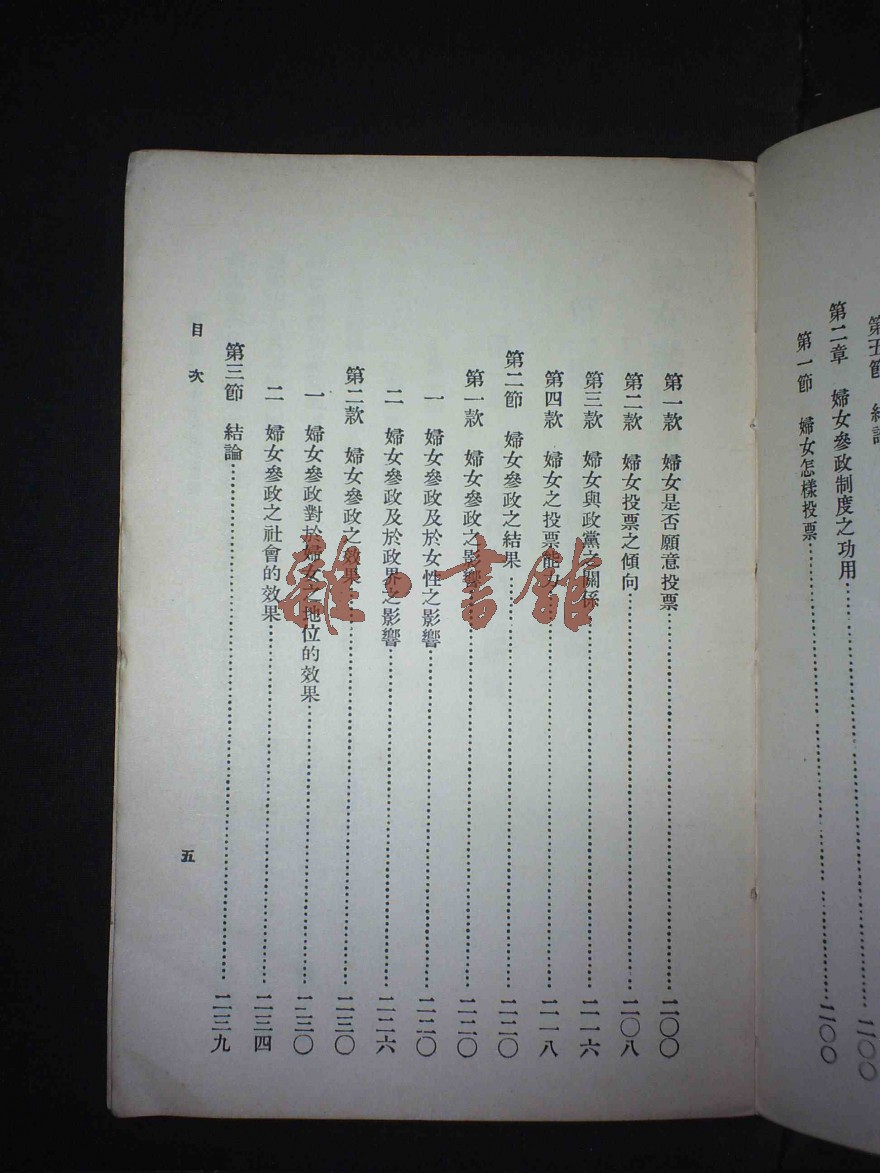 第二章　婦女參政制度之功用……二〇〇
第一節　婦女怎樣投票……二〇〇
第一款　婦女是否願意投票……二〇〇
第二款　婦女投票之傾向……二〇八
第三款　婦女與政黨之關係……二一六
第四款　婦女之投票能力……二一八
第二節　婦女參政之結果……二二〇
第一款　婦女參政之影響……二二〇
一　婦女參政及於女性之影響……二二〇
二　婦女參政及於政界之影響……二二六
第二款　婦女參政之效果……二三〇
一　婦女參政對於婦女之地位的效果……二三〇
二　婦女參政之社會的效果……二三四
第三節　結論……二三九
目次
五
雜·書館